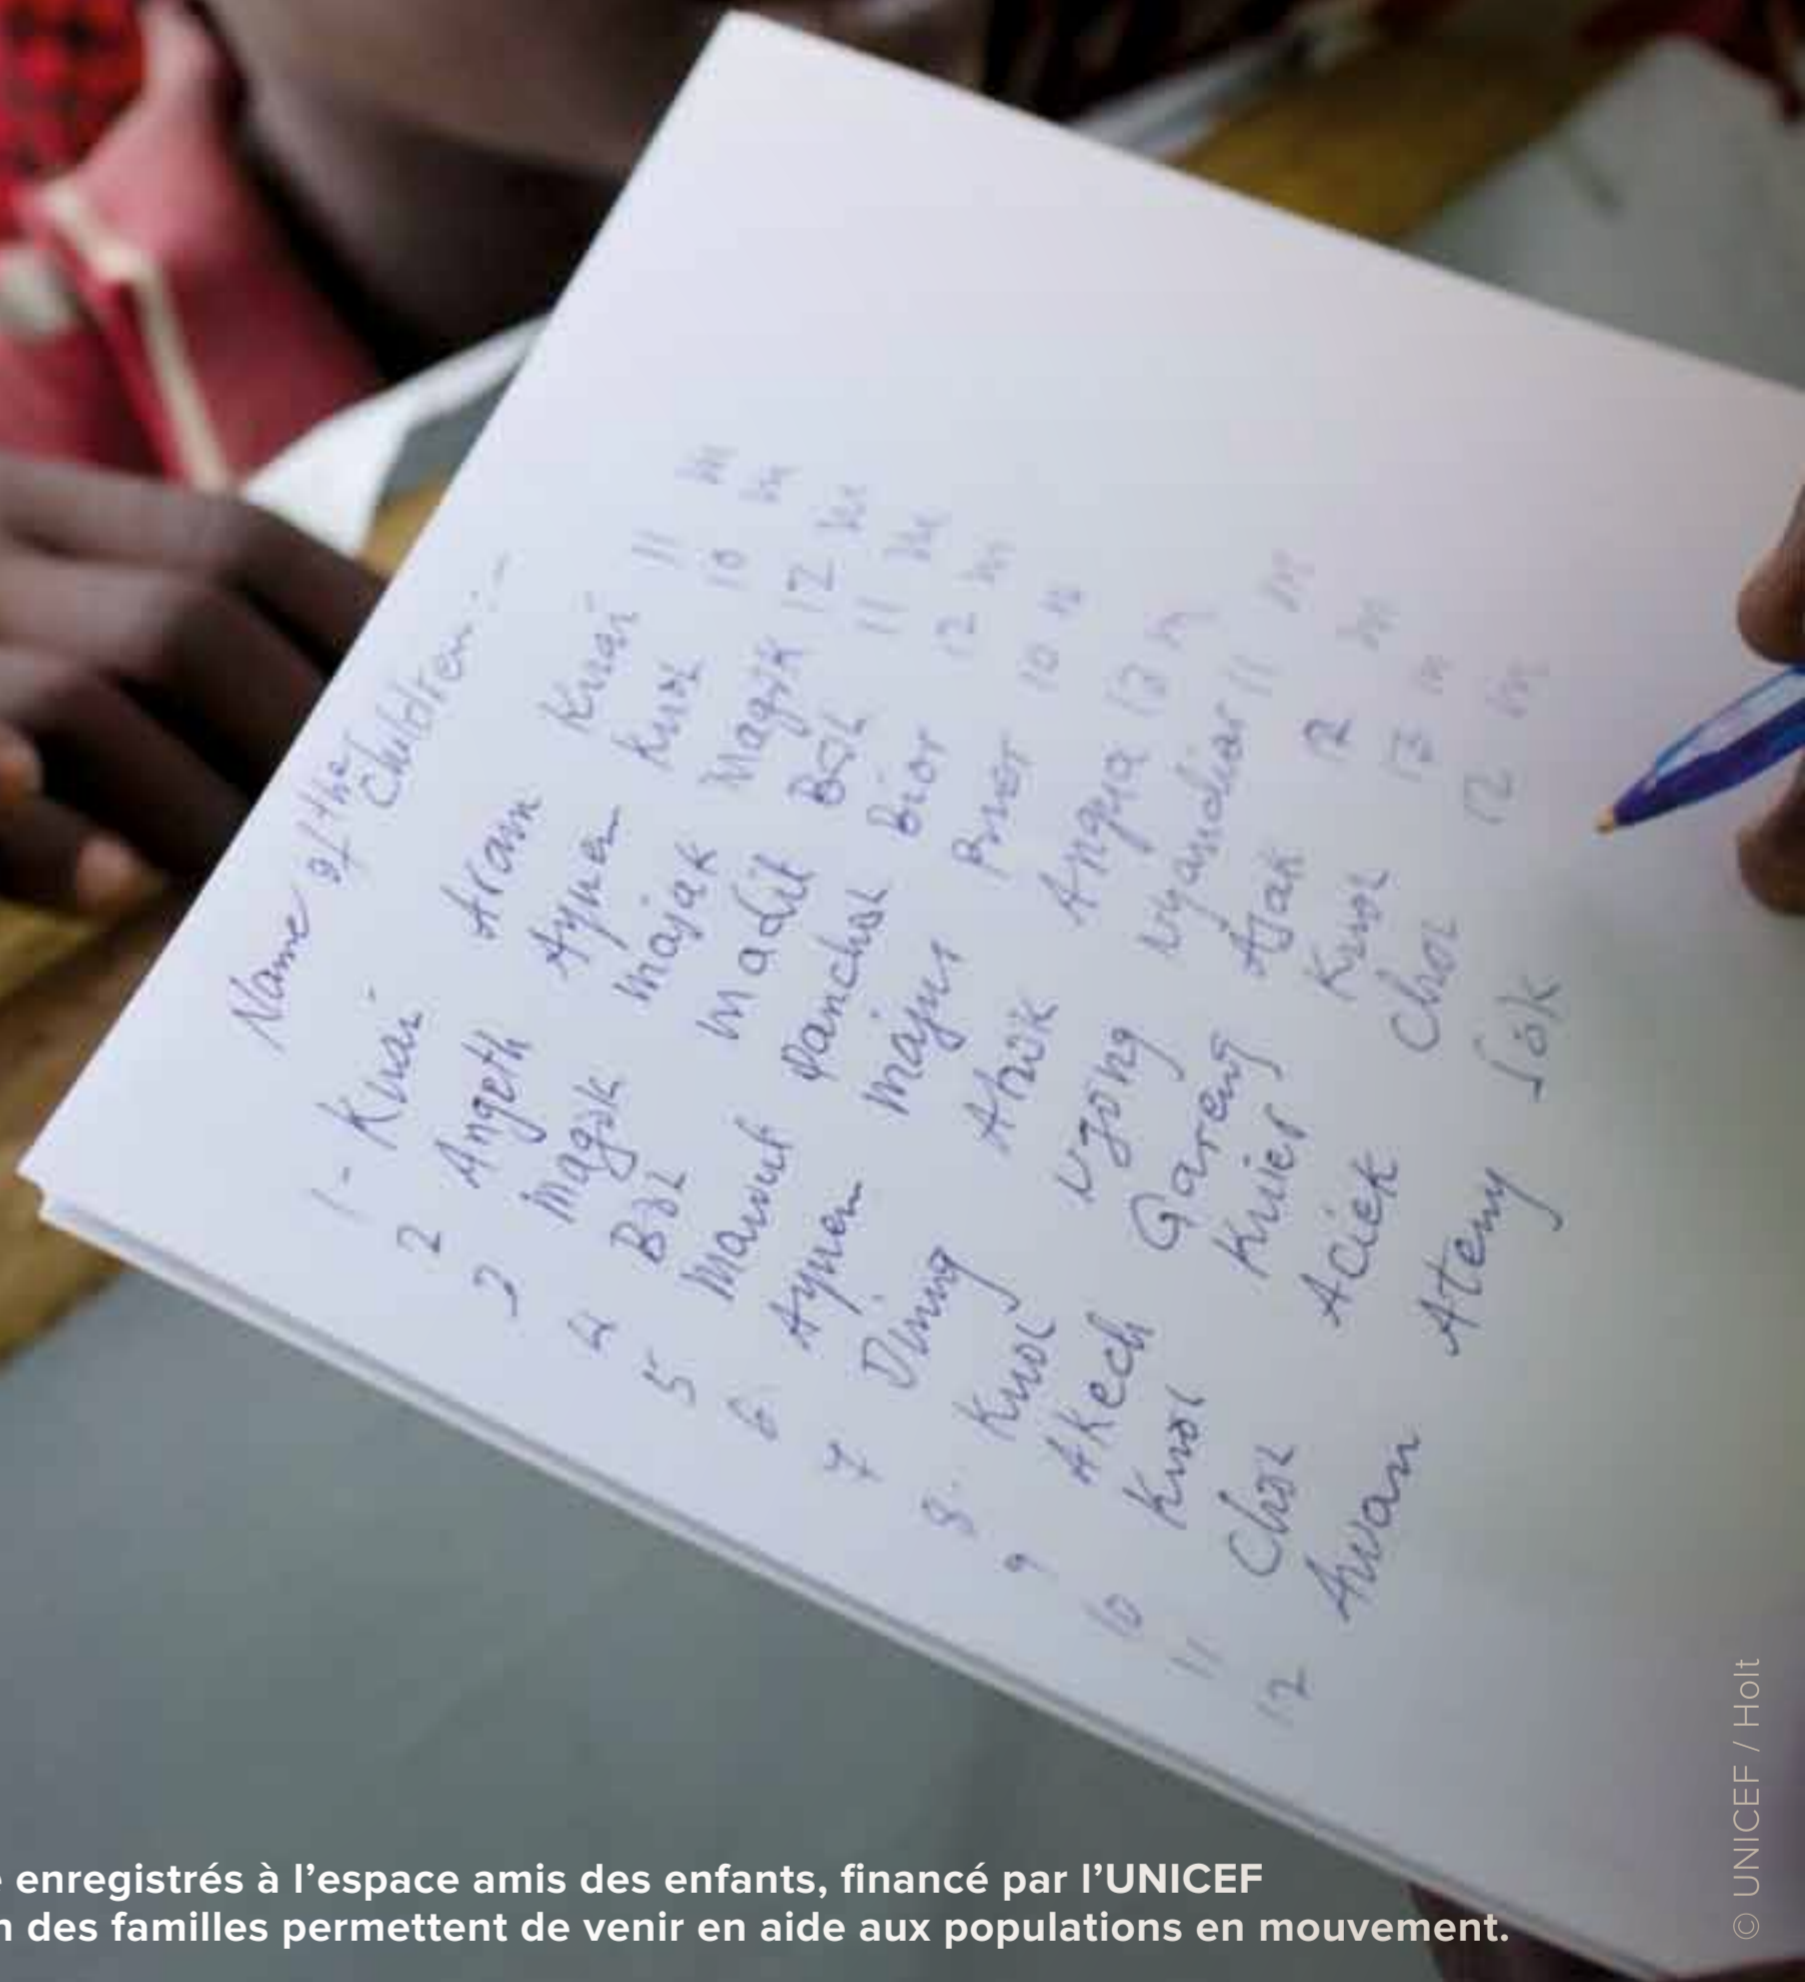 Name of the
Children:-
1- Kuai Aram Kuai 11 m
2 Angeth Ayuen Kuol 10 m
3 Magok Majak Magok 12 m
4 Bol Madit Bol 11 m
5 Manut Panchol Bior 12 m
6 Ayuen Majur 10 m
7 Atuok Angua 13 m
8. Kuol Ngong Nyandiar 11 m
9 Akech Gareng Ajak 12 m
10 Kuol Kuier Kuol 13 m
11 Chol Aciek Chol 12 m
12 Awan Ateny
enregistrés à l'espace amis des enfants, financé par l'UNICEF
des familles permettent de venir en aide aux populations en mouvement.
© UNICEF / Holt